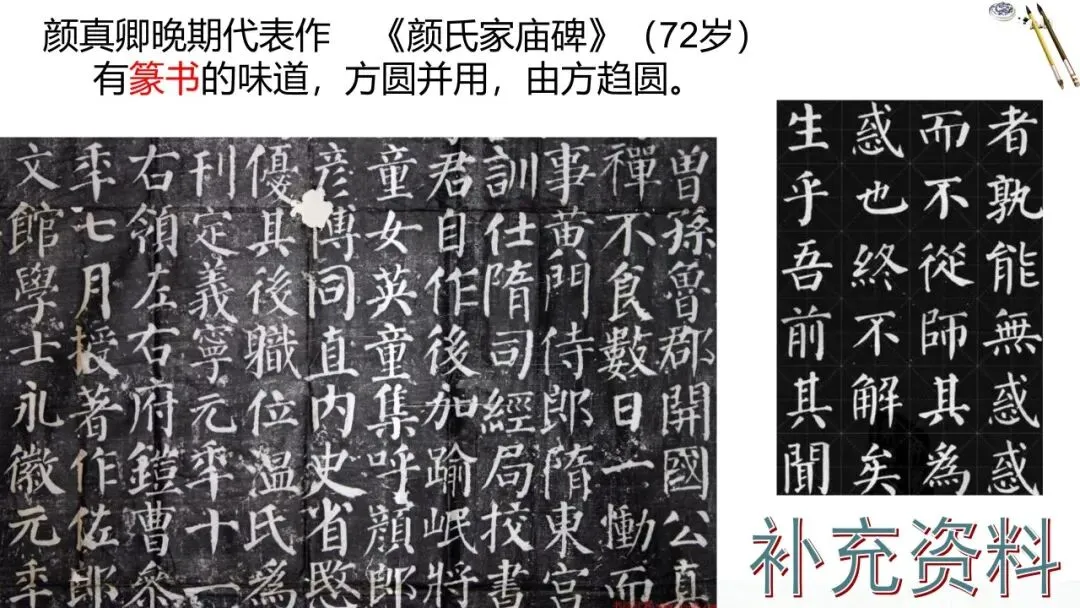 颜真卿晚期代表作 《颜氏家庙碑》（72岁）
有篆书的味道，方圆并用，由方趋圆。
曽孫魯郡開國公真
禪不食數日一慟而
事黄門侍郎隋東宫
訓仕隋司經局挍書
君自作後加踰岷將
童女英童集呼顔郎
彦博同直内史省愍
優其後職位温氏為
刊定義寧元年十一
右領左右府鎧曹叅
年七月授著作佐郎
文館學士永徽元年
者孰能無惑惑
而不從師其為
惑也終不解矣
生乎吾前其聞
补充资料